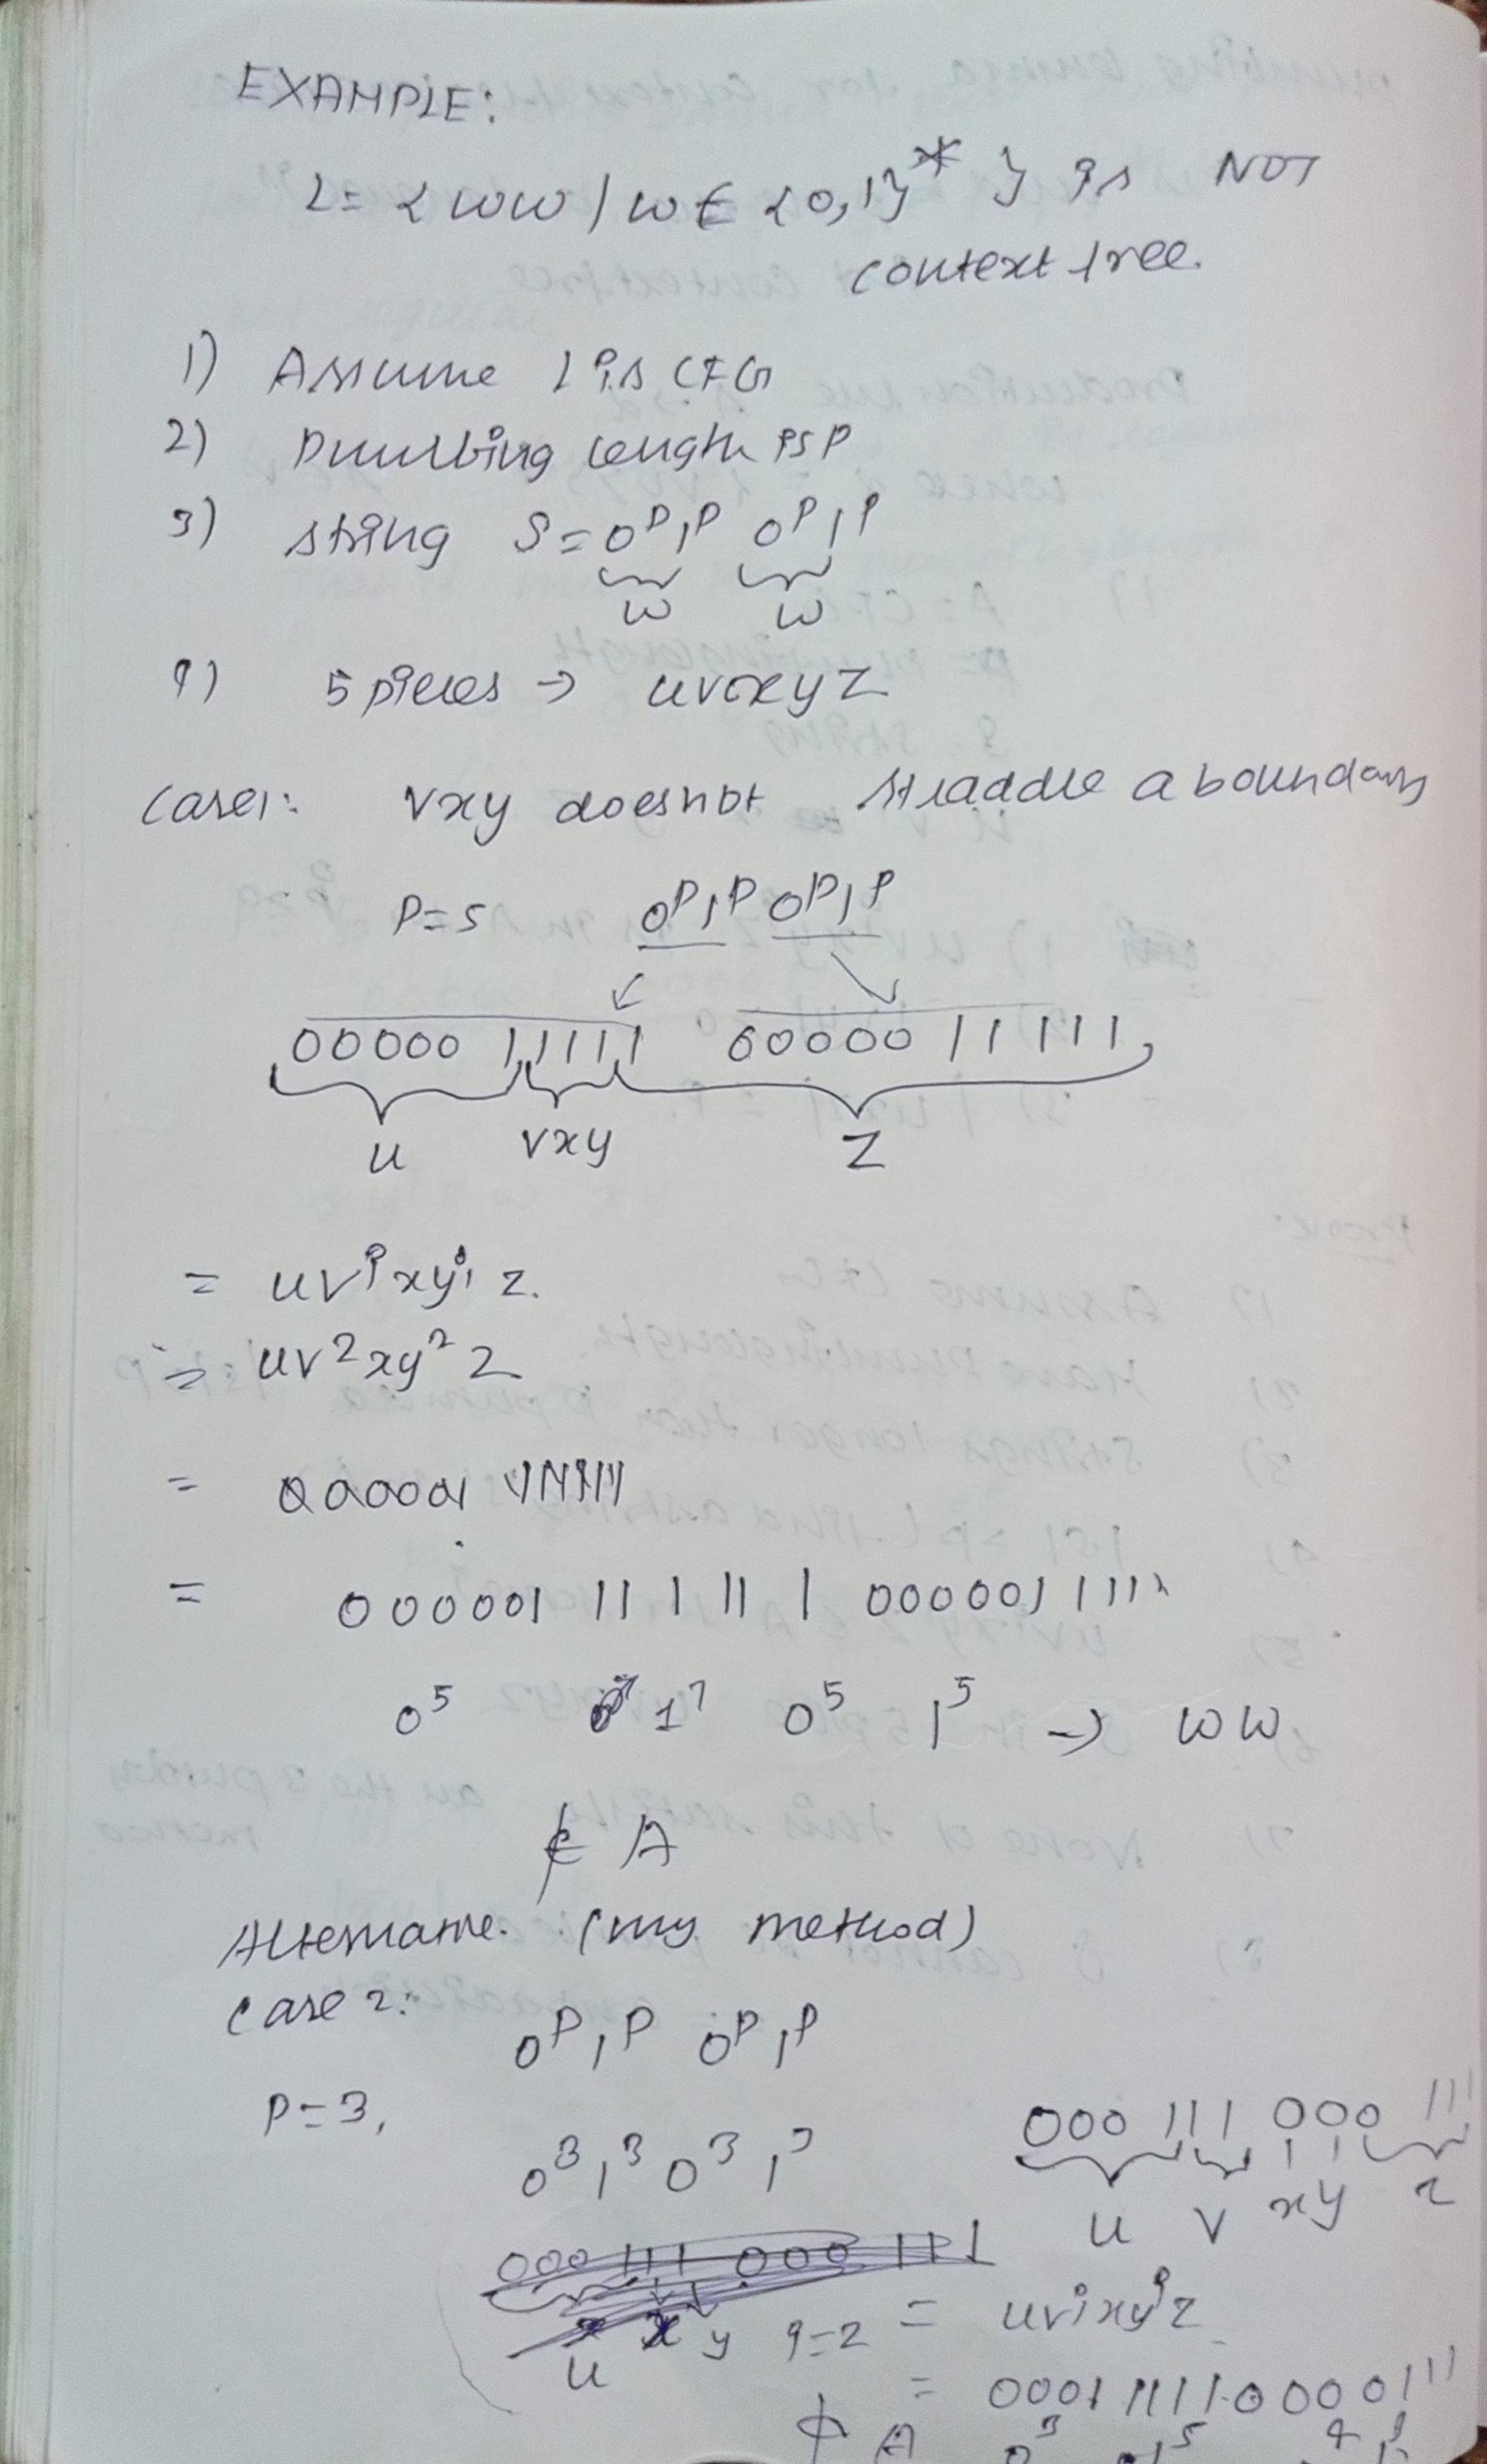 EXAMPLE:
L = { ww | w ∈ {0,1}* } is NOT
context free.
1) Assume L is CFG
2) Pumbing length is P
3) string S = 0^P 1^P 0^P 1^P
w w
4) 5 pieces → uvxyz
Case1: vxy does not straddle a boundary
P=5 0^P 1^P 0^P 1^P
00000 11111 00000 11111
u vxy z
= uv^i xy^i z.
= uv^2 xy^2 z
=
= 000001 11 1 11 1 000001 1111
0^5 1^7 0^5 1^5 → ww
∉ A
Altername. (my method)
Case 2: 0^P 1^P 0^P 1^P
P=3,
000 111 000 111
0^3 1^3 0^3 1^3
u v x y z
u x y i=2 = uv^i xy^i z
= 0001 1111 0000 111
∉ A 0^3 1^5